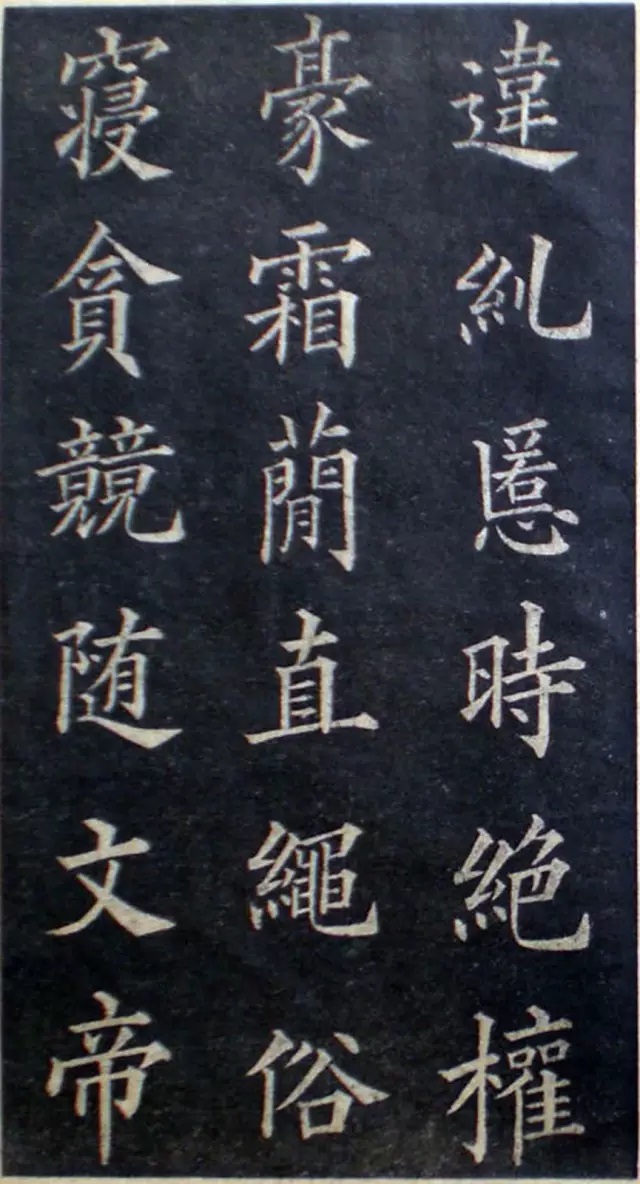 違糺慝時絶權
豪霜簡直繩俗
寢貪競随文帝